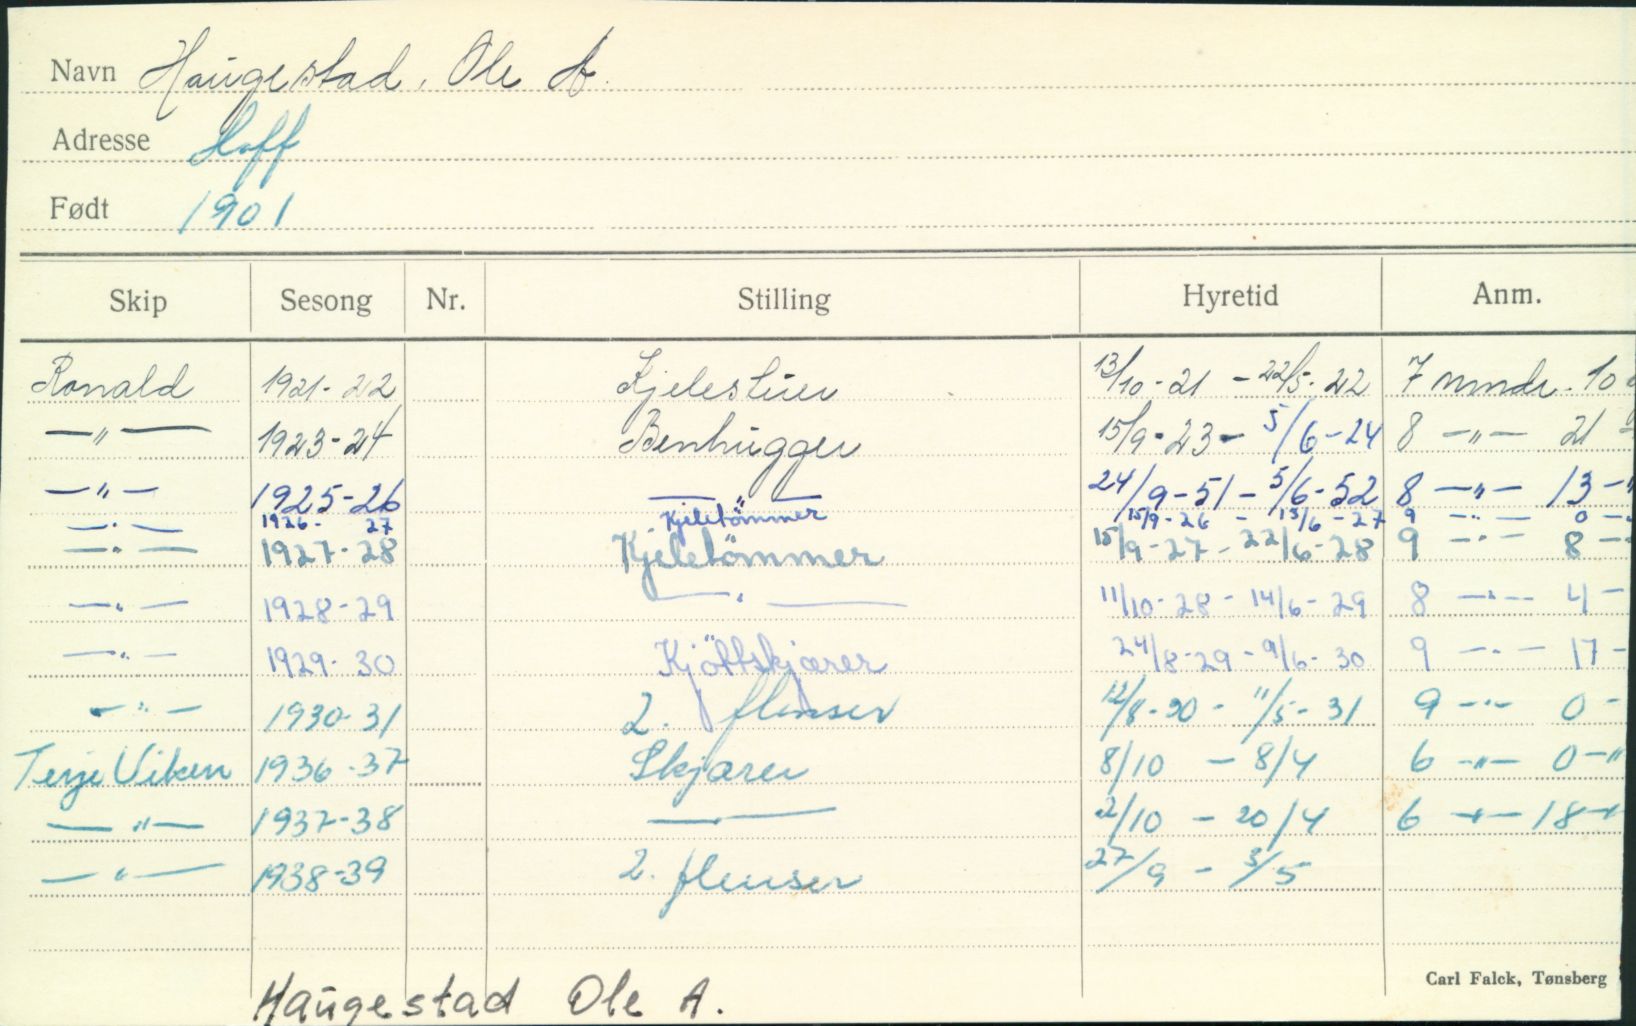 Navn Haugestad, Ole A.
Adresse Hoff
Født 1901
Skip Sesong Nr. Stilling Hyretid Anm.
Ronald 1921-22 Kjelestuer 13/10-21 - 22/5-22 7 mndr. 10
—"— 1923-24 Benhugger 15/9-23 - 5/6-24 8 —"— 21
—"— 1925-26 —"— 24/9-51 - 5/6-52 8 —"— 13 —"
—"— 1926-27 Kjeletömmer 15/9-26 - 15/6-27 9 —"— 0 —
—"— 1927-28 Kjeletömmer 15/9-27 - 22/6-28 9 —"— 8 —
—"— 1928-29 —"— 11/10-28 - 14/6-29 8 —"— 4 —
—"— 1929-30 Kjöttskjærer 24/8-29 - 9/6-30 9 —"— 17 —
—"— 1930-31 2. flenser 12/8-30 - 11/5-31 9 —"— 0 —
Terje Viken 1936-37 Skjærer 8/10 - 8/4 6 —"— 0 —"
—"— 1937-38 —— 2/10 - 20/4 6 —"— 18 —
—"— 1938-39 2. flenser 27/9 - 3/5
Carl Falck, Tønsberg
Haugestad Ole A.